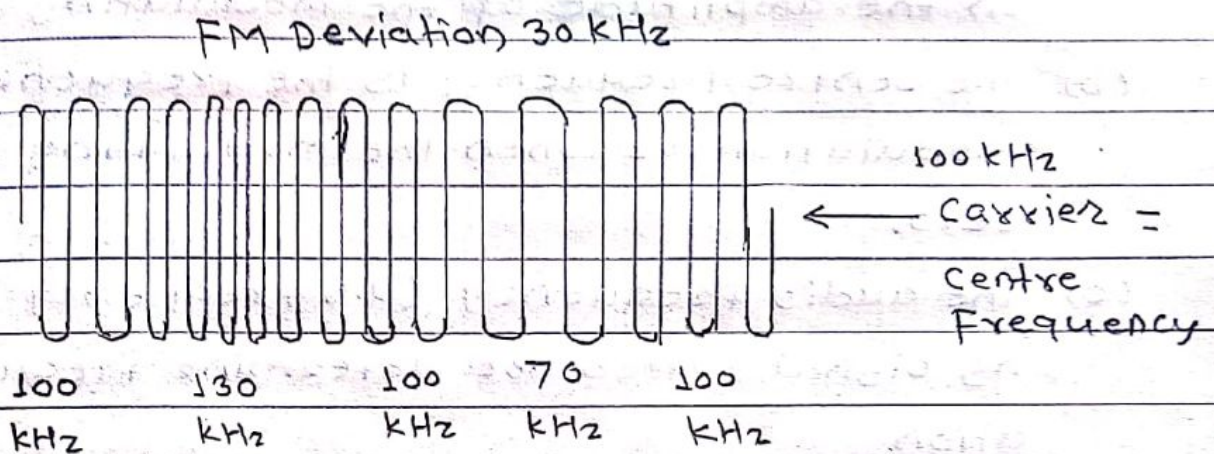 FM Deviation 30 kHz
100 kHz
← Carrier =
Centre
Frequency
100 130 100 70 100
kHz kHz kHz kHz kHz